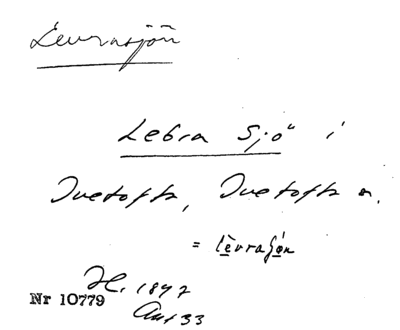 Levrasjön
Lebra Sjö i
Ivetofta, Ivetofta s.
= lèvraʃön
H. 1847
Nr 10779
Ant 33